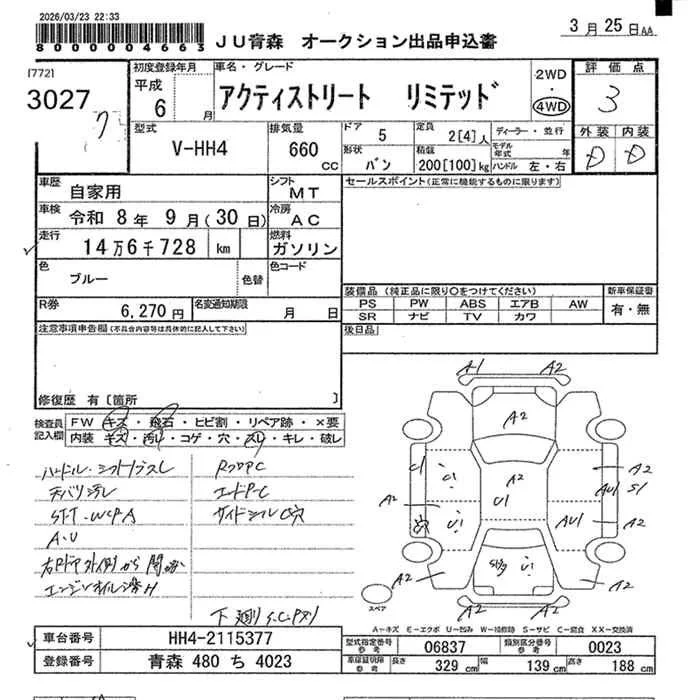 2026/03/23 22:33
8000004663
JU青森 オークション出品申込書
3月25日AA
[772]
3027
7
初度登録年月
平成
6 月
車名・グレード
アクティストリート リミテッド
2WD
・
4WD
評価点
3
型式
V-HH4
排気量
660
CC
ドア
5
定員
2[4]人
ディーラー・並行
形状
バン
積載
200[100]kg
モデル年式 年
ハンドル 左・右
外装 内装
D D
車歴
自家用
シフト
MT
車検
令和 8年 9月(30日)
冷房
AC
走行
14万6千728 km
燃料
ガソリン
色
ブルー
色替
色コード
R券
6,270円
名変通知期限
月 日
セールスポイント(正常に機能するものに限ります)
装備品(純正品に限り○をつけてください)
新車保証書
PS PW ABS エアB AW
SR ナビ TV カワ
有・無
後日品
注意事項申告欄(不具合内容等は具体的に記入して下さい)
修復歴 有[箇所 ]
検査員
記入欄
FW キズ・飛石・ヒビ割・リペア跡・×要
内装 キズ・汚れ・コゲ・穴・スレ・キレ・破レ
ハンドル・シフトノブスレ
天バリ汚レ
A・U
エンジンオイル滲み
下廻りS.C.Pスリ
A1 A2
A2
C1 U1 A2 A2
U1 AU1 S1
A2 U1 AU1 A2
A2 A2
A2
スペア
A－キズ E－エクボ U－凹み W－補修跡 S－サビ C－腐食 XX－交換済
車台番号
HH4-2115377
登録番号
青森 480 ち 4023
型式指定番号
参考
06837
類別区分番号
参考
0023
車庫証明用
参考
長さ 329cm 幅 139cm 高さ 188cm